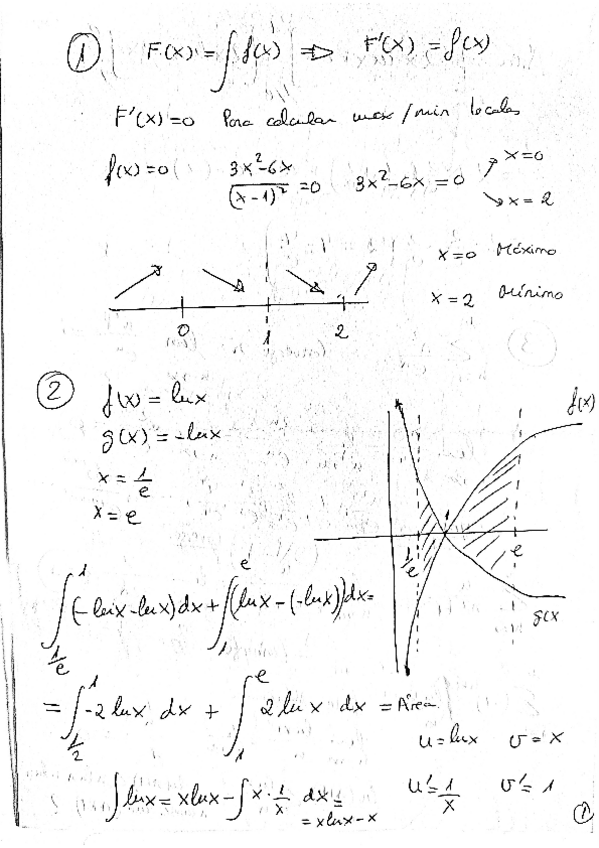 ① F(x) = ∫ f(x) ⇒ F'(x) = f(x)
F'(x) = 0 Para calcular max/min locales
f(x) = 0 (3x²-6x)/(x-1)² = 0 3x²-6x = 0 ↗ x=0 ↘ x=2
x=0 Máximo
x=2 Mínimo
0 1 2
② f(x) = lnx
g(x) = -lnx
x = 1/e
x = e
f(x)
1/e 1 e
g(x
∫_{1/e}^{1} (-lnx-lnx)dx + ∫_{1}^{e} (lnx-(-lnx))dx=
= ∫_{1/2}^{1} -2 lnx dx + ∫_{1}^{e} 2 ln x dx = Área
u=lnx v=x
∫ lnx = x lnx - ∫ x·1/x dx =
= x lnx - x
u'=1/x v'=1
①